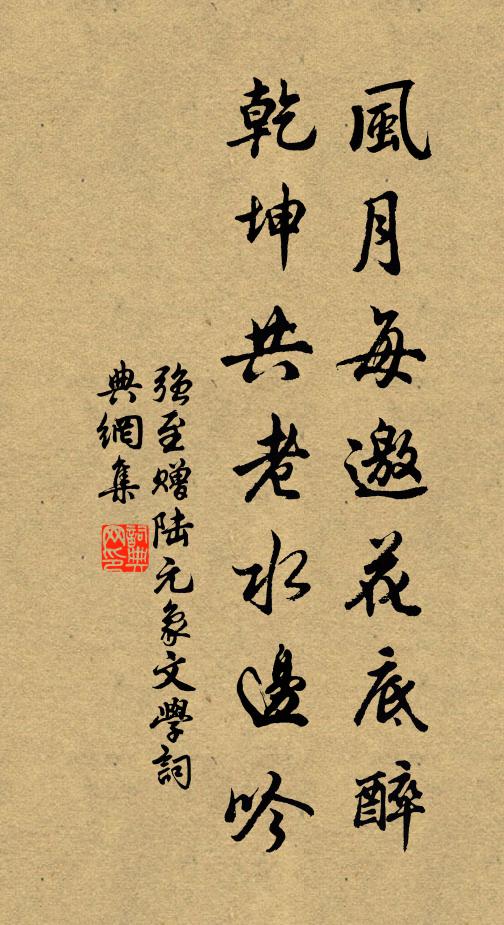 風月每邀花底醉
乾坤共老水邊吟
強至贈陸元象文學詞
典網集
詞典
网印